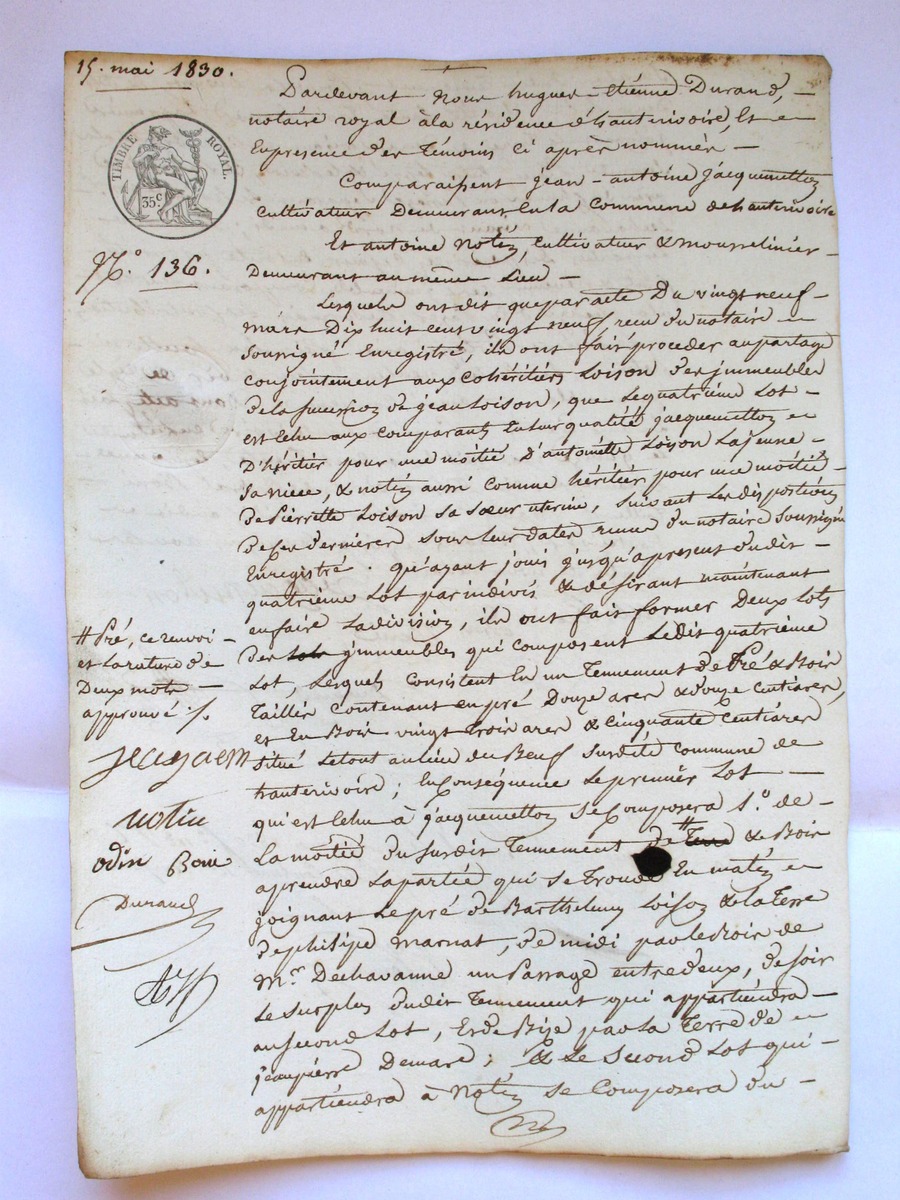 15. mai 1830.
TIMBRE ROYAL.
35.c
N.o 136.
Pardevant nous hugues-étienne Durand,
notaire royal à la résidence d'hauterivoire, Et
En présence des témoins ci après nommés
Comparaissent jean-antoine jacquemetton
cultivateur Demeurant En la Commune de hauterivoire
Et antoine Notin, Cultivateur & Mousselinier
Demeurant au même Lieu
Lesquels ont dit que par acte Du vingt neuf
mars Dix huit cent vingt neuf, recu du notaire
soussigné Enregistré, ils ont fait procéder au partage
conjointement aux cohéritiers Loison Des jmmeubles
de la succession de jean Loison, que Le quatrième Lot
est échu aux comparants En leur qualité, jacquemetton
D'héritier pour une moitié D'antoinette Loison La jeune
sa niece, & notin aussi comme héritier pour une moitié
de Pierrette Loison sa sœur uterine, suivant Les dispositions
de ces dernieres sous leur dates reçues du notaire soussigné
Enregistré. qu'ayant joui jusqu'apresent dudit
quatrième Lot par indivis & désirant maintenant
en faire La division, ils ont fait former Deux Lots
des jmmeubles qui composent Ledit quatrième
Lot, Lesquels consistent En un Tennement de Pré & Bois
Taillis contenant en pré Douze ares & douze centiares,
et En Bois vingt trois ares & cinquante centiares
situé Le tout au lieu du Bœuf sur dité commune de
hauterivoire; En conséquence Le premier Lot
qui est échu à jacquemetton Se Composera 1.o de
La moitié du susdit Tennement de # Terre & Bois
a prendre La partie qui se trouve En matin
joignant Le pré de Barthelemy Loison & la Terre
de philipe Marnat, de midi par le Bois de
M.r Dechavanne un Passage entre deux, de soir
Le surplus dudit Tennement qui appartiendra
au second Lot, Et de Bize par La Terre de
jean pierre Demare; & Le Second Lot qui
appartiendra à Notin se Composera du
# Pré, ce renvoi
et La rature de
Deux mots
approuvé ./.
jeacjaem
notin
odin Boui
Durand